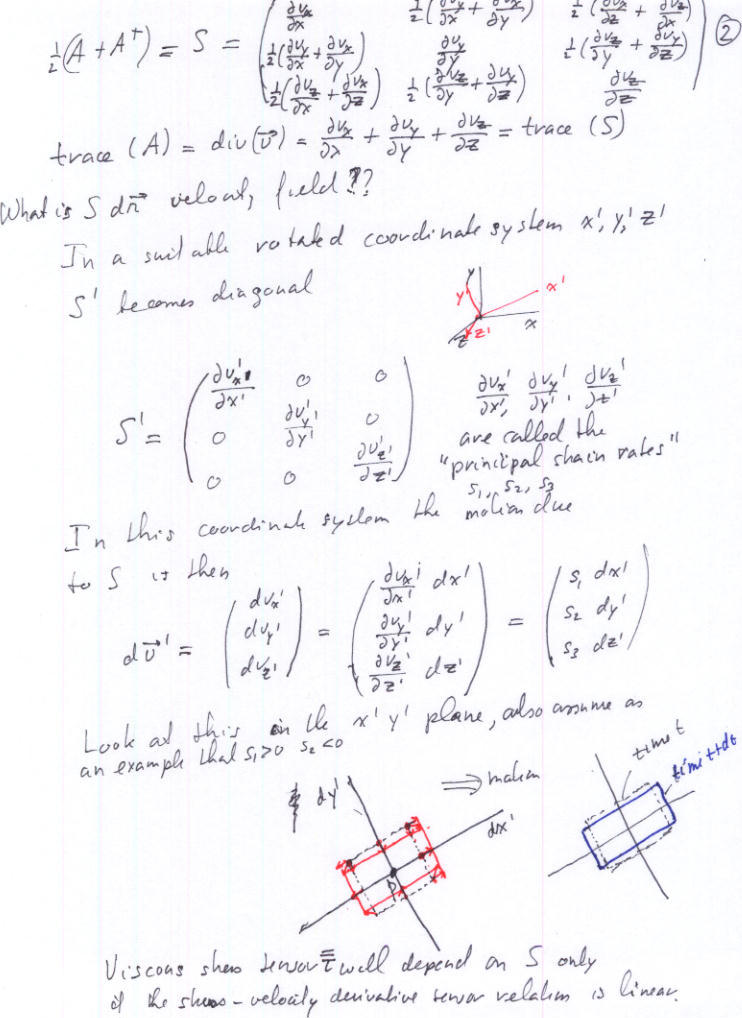 ½(A + A⁺) = S = ( ∂vx/∂x ½(∂vy/∂x + ∂vx/∂y) ½(∂vx/∂z + ∂vz/∂x) ②
½(∂vy/∂x + ∂vx/∂y) ∂vy/∂y ½(∂vz/∂y + ∂vy/∂z)
½(∂vz/∂x + ∂vx/∂z) ½(∂vz/∂y + ∂vy/∂z) ∂vz/∂z )
trace (A) = div(v⃗) = ∂vx/∂x + ∂vy/∂y + ∂vz/∂z = trace (S)
What is S dr⃗ velocity field??
In a suitable rotated coordinate system x', y', z'
S' becomes diagonal
y y' x' x z z'
S' = ( ∂vx'/∂x' 0 0
0 ∂vy'/∂y' 0
0 0 ∂vz'/∂z' )
∂vx'/∂x', ∂vy'/∂y', ∂vz'/∂z'
are called the
"principal strain rates"
s₁, s₂, s₃
In this coordinate system the motion due
to S is then
dv⃗' = ( dvx' dvy' dvz' ) = ( ∂vx'/∂x' dx' ∂vy'/∂y' dy' ∂vz'/∂z' dz' ) = ( s₁ dx' s₂ dy' s₃ dz' )
Look at this in the x' y' plane, also assume as
an example that s₁>0 s₂<0
dy' ⟹ motion dx'
time t
time t+dt
Viscous stress tensor τ will depend on S only
if the stress - velocity derivative tensor relation is linear.